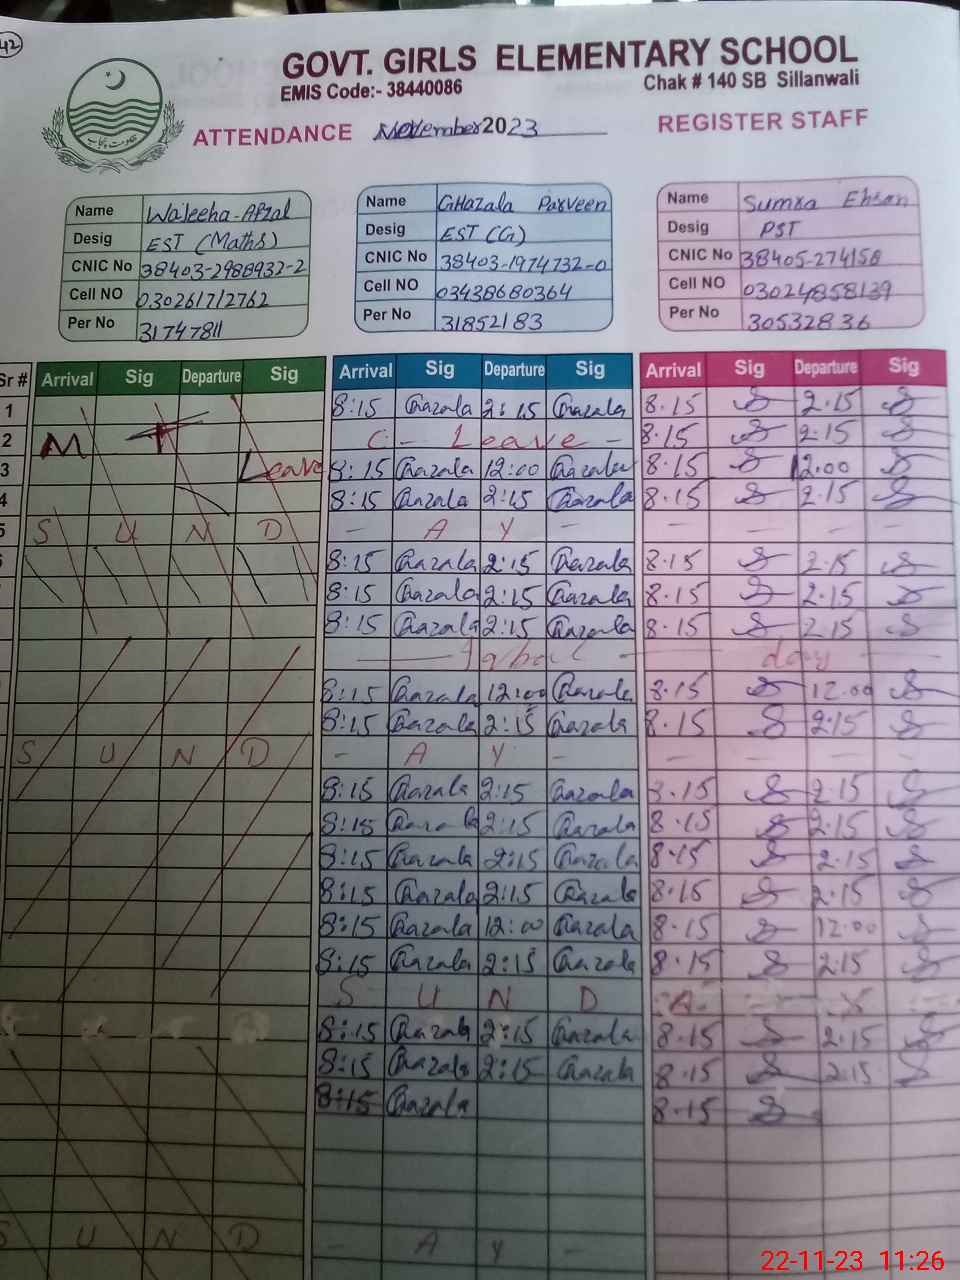 42
GOVT. GIRLS ELEMENTARY SCHOOL
EMIS Code:- 38440086 Chak # 140 SB Sillanwali
ATTENDANCE November 2023 REGISTER STAFF
Name Wajeeha-Afzal Name GHazala Parveen Name Sumra Ehsan
Desig EST (Maths) Desig EST (G) Desig PST
CNIC No 38403-2988932-2 CNIC No 38403-1974732-0 CNIC No 38405-274158
Cell NO 030261712762 Cell NO 03438680364 Cell NO 03024858139
Per No 31747811 Per No 31852183 Per No 30532836
Sr # Arrival Sig Departure Sig Arrival Sig Departure Sig Arrival Sig Departure Sig
1 8:15 Ghazala 2:15 Ghazala 8.15 2.15
2 M C - Leave - 8.15 2.15
3 Leave 8:15 Ghazala 12:00 Ghazala 8.15 12.00
4 8:15 Ghazala 2:15 Ghazala 8.15 2.15
5 S U N D - A Y - - - - -
8:15 Ghazala 2:15 Ghazala 8.15 2.15
8:15 Ghazala 2:15 Ghazala 8.15 2.15
8:15 Ghazala 2:15 Ghazala 8.15 2.15
Iqbal day
8:15 Ghazala 12:00 Ghazala 8.15 12.00
8:15 Ghazala 2:15 Ghazala 8.15 2.15
S U N D - A Y - - - - -
8:15 Ghazala 2:15 Ghazala 8.15 2.15
8:15 Ghazala 2:15 Ghazala 8.15 2.15
8:15 Ghazala 2:15 Ghazala 8.15 2.15
8:15 Ghazala 2:15 Ghazala 8.15 2.15
8:15 Ghazala 12:00 Ghazala 8.15 12.00
8:15 Ghazala 2:15 Ghazala 8.15 2.15
S U N D A Y
8:15 Ghazala 2:15 Ghazala 8.15 2.15
8:15 Ghazala 2:15 Ghazala 8.15 2.15
8:15 Ghazala 8.15
S U N D - A Y -
22-11-23 11:26